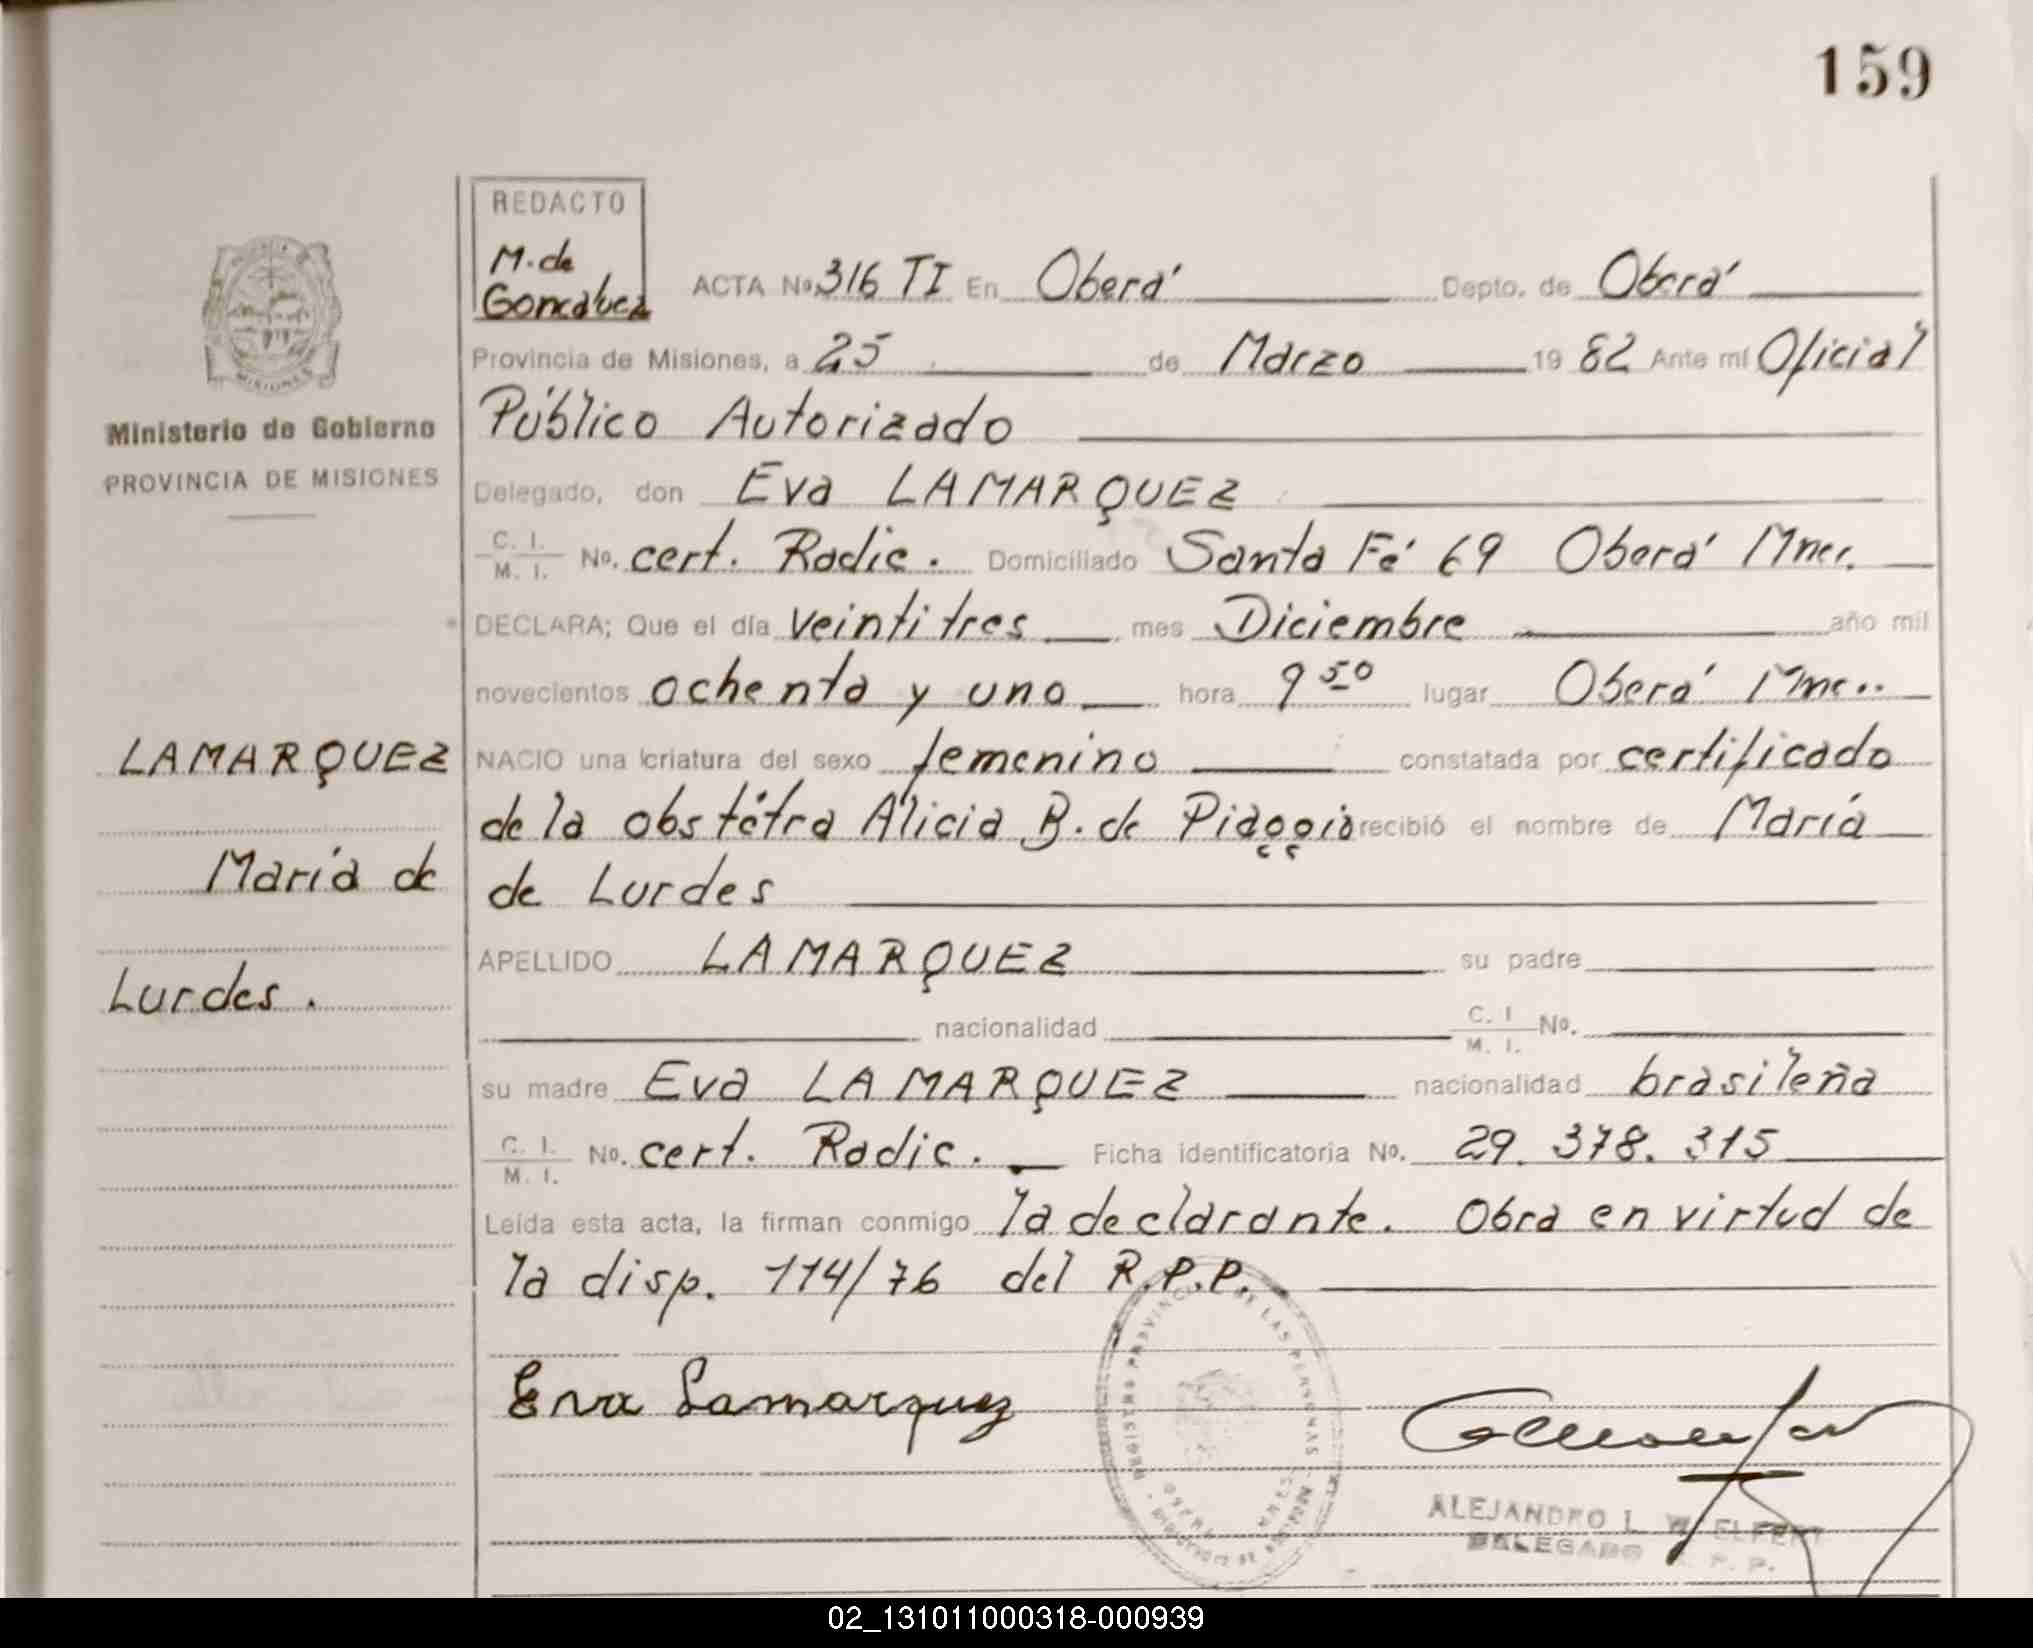 159
REDACTO
M. de
Goncalvez
ACTA No. 316 TI En Oberá Depto. de Oberá
Provincia de Misiones, a 25 de Marzo 19 82 Ante mí Oficial
Público Autorizado
Delegado, don Eva LAMARQUEZ
C. I.
M. I. No. cert. Radic. Domiciliado Santa Fé 69 Oberá Mnes.
DECLARA; Que el día veintitres mes Diciembre año mil
novecientos ochenta y uno hora 9 50 lugar Oberá Mnes.
NACIO una criatura del sexo femenino constatada por certificado
de la obstétra Alicia B. de Piaggio recibió el nombre de María
de Lurdes
APELLIDO LAMARQUEZ su padre
nacionalidad C. I.
M. I. No.
su madre Eva LAMARQUEZ nacionalidad brasileña
C. I.
M. I. No. cert. Radic. Ficha identificatoria No. 29.378.315
Leída esta acta, la firman conmigo la declarante. Obra en virtud de
la disp. 114/76 del R.P.P.
Eva Lamarquez
ALEJANDRO L.
DELEGADO R. P. P.
MISIONES
Ministerio de Gobierno
PROVINCIA DE MISIONES
LAMARQUEZ
María de
Lurdes.
REGISTRO PROVINCIAL DE LAS PERSONAS
02_131011000318-000939